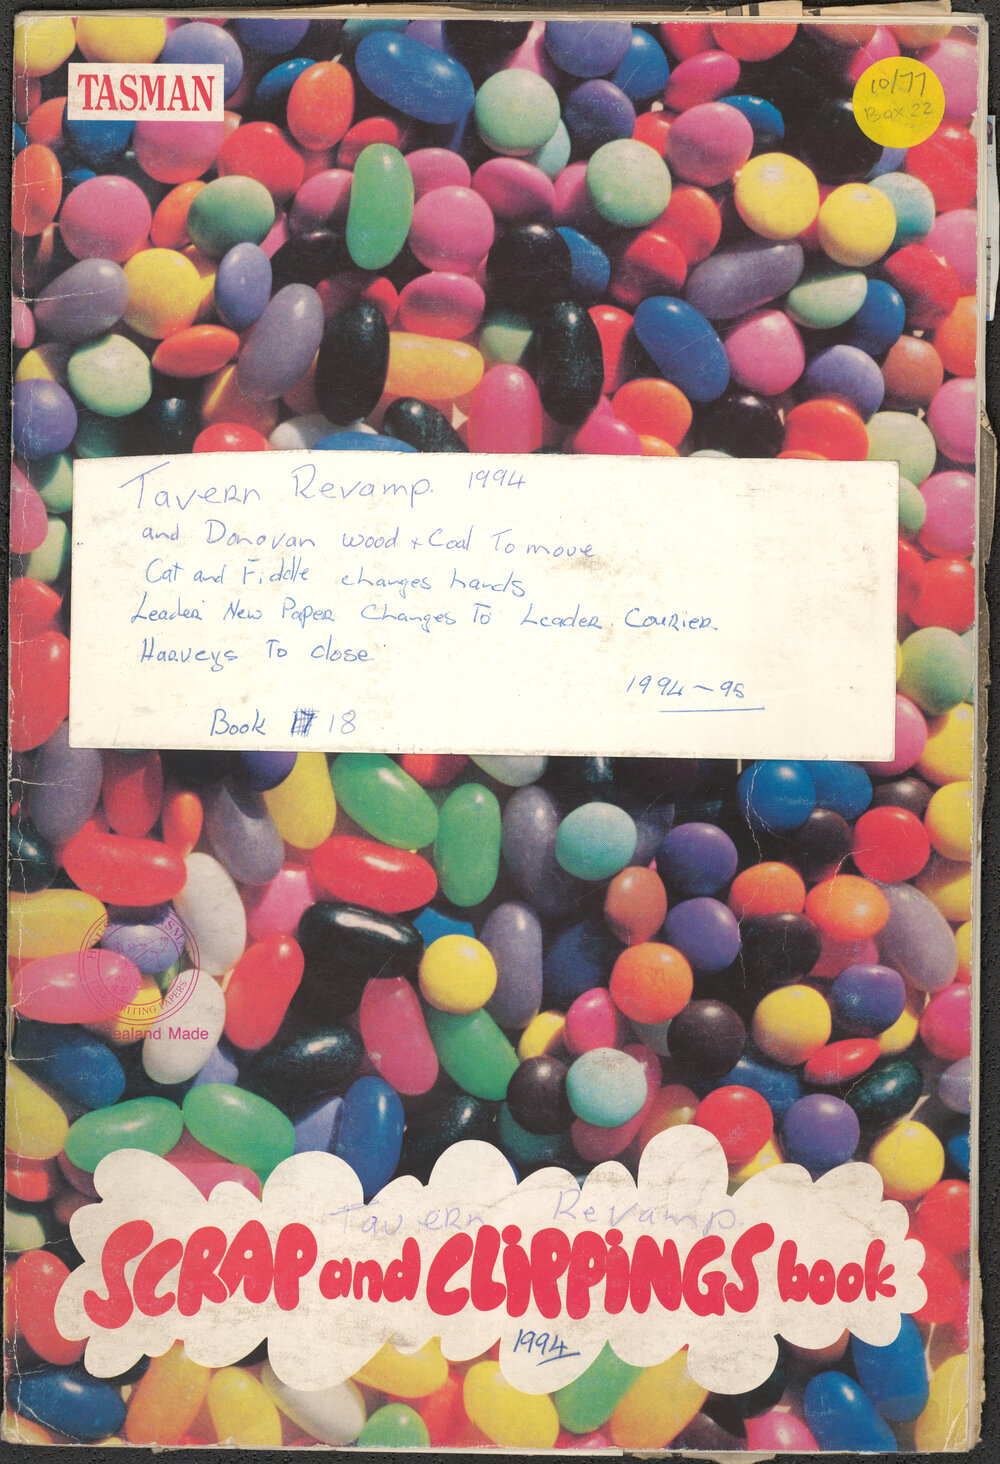 TASMAN
10/77
Box 22
Tavern Revamp. 1994
and Donovan wood + Coal To move
Cat and Fiddle changes hands
Leader New Paper Changes To Leader. Courier.
Harveys To close.
1994-95
Book 18
WRITING PAPERS
ealand Made
Tavern Revamp.
SCRAP and CLiPPiNGS book
1994